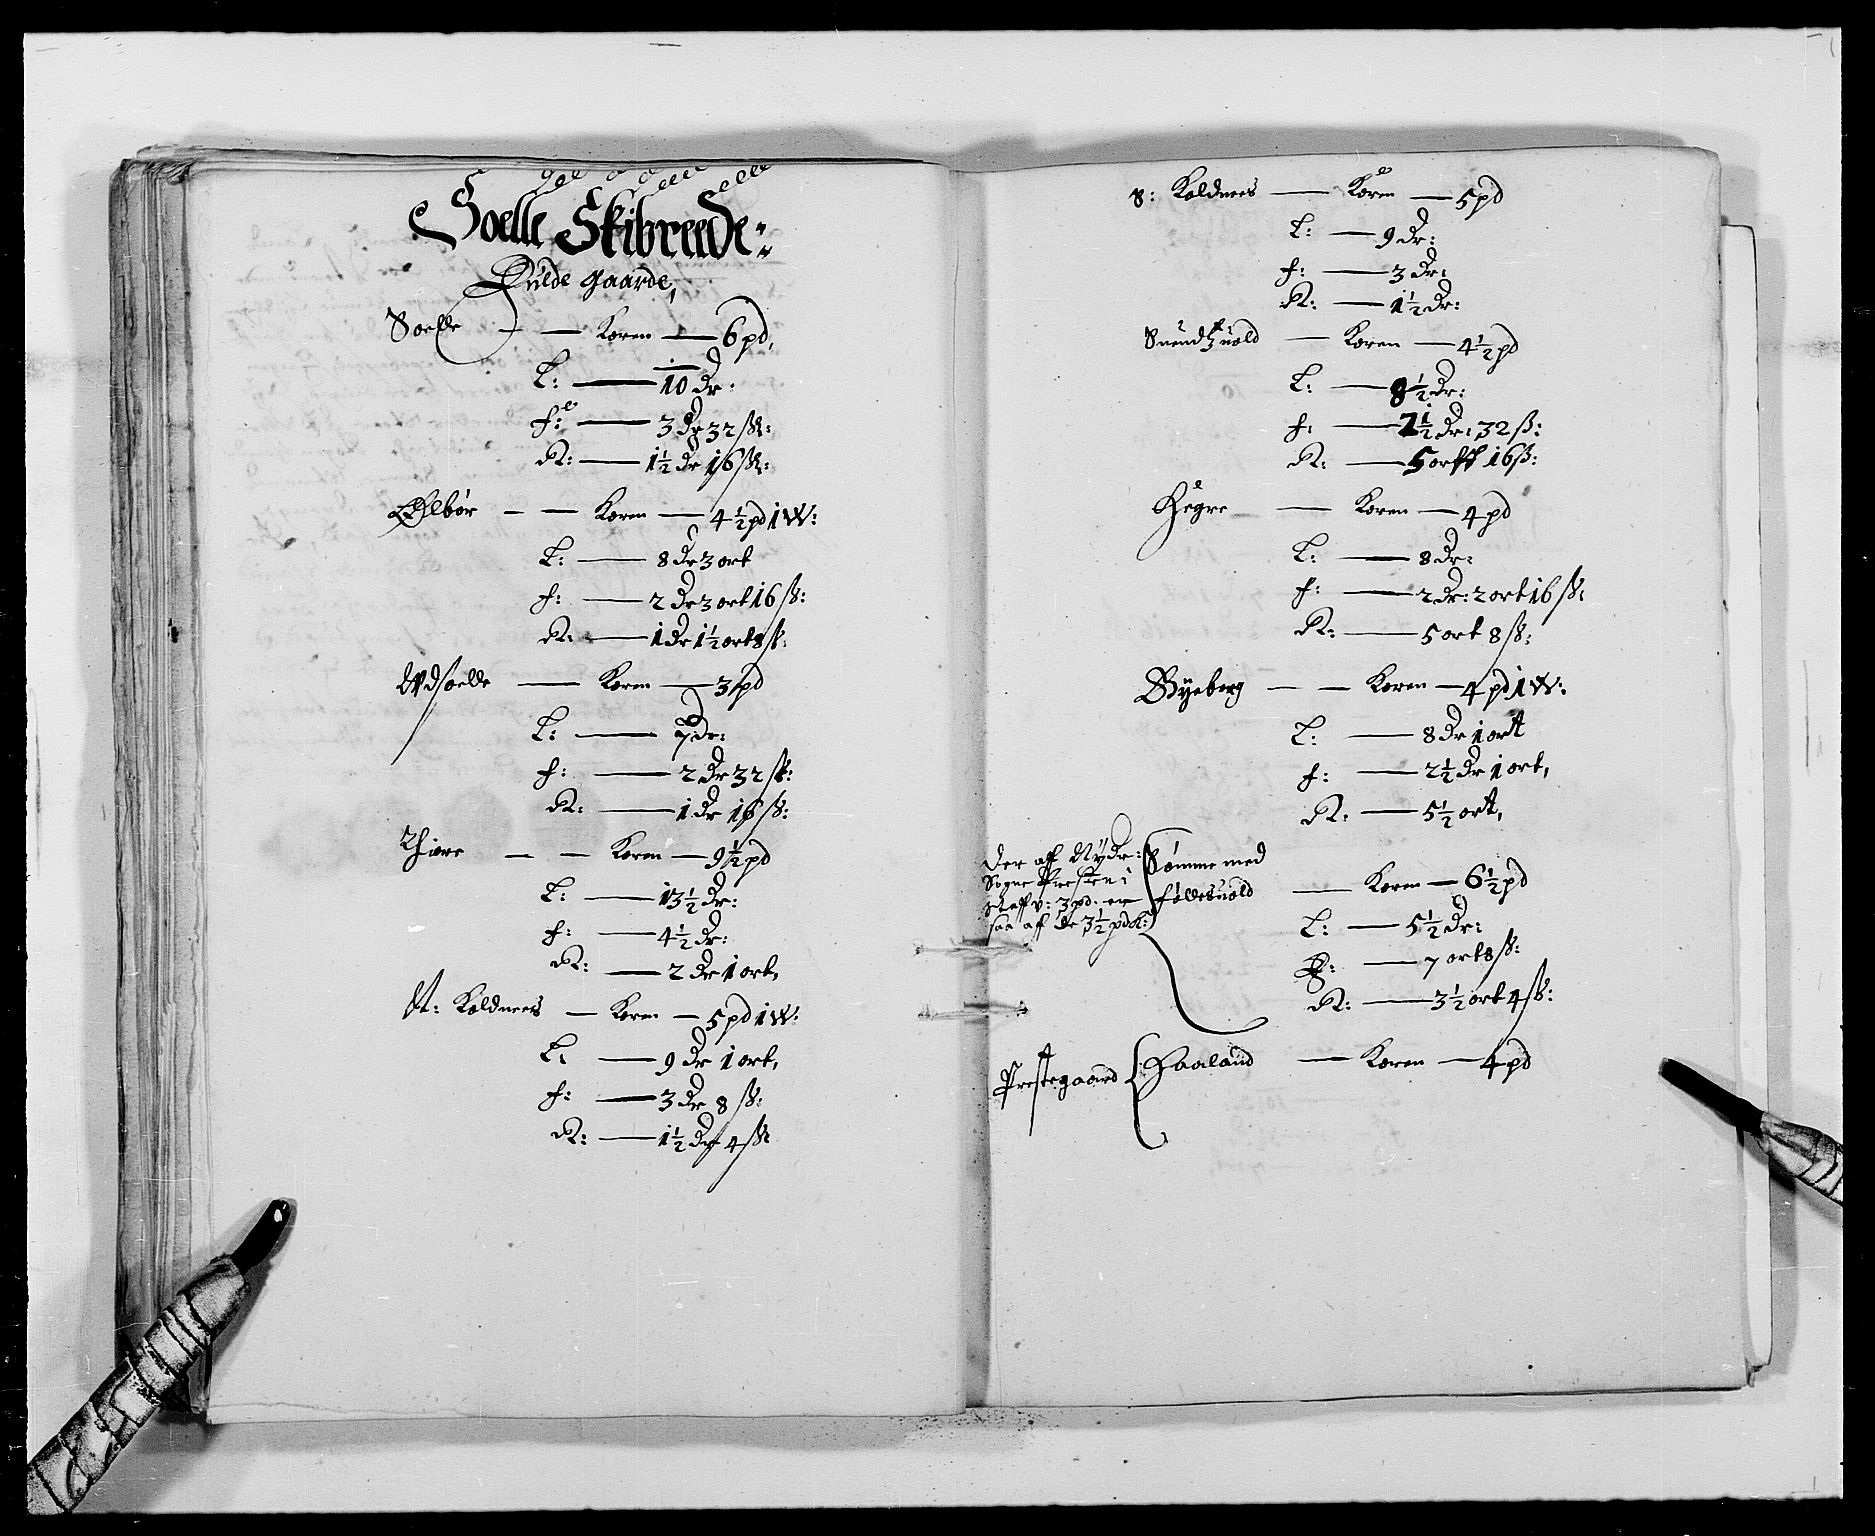 Soelle Skibreede:
Fulde gaarde,
Soelle — — Koren — 6 pd,
L: — 10 Dr:
f: — 3 Dr 32 ß:
R: — 1½ Dr 16 ß:
Ølbør — — Koren — 4½ pd 1 W:
L: — 8 Dr 3 ort
f: — 2 Dr 3 ort 16 ß:
R: — 1 Dr 1½ ort 8 ß:
Udsoelle — Koren — 3 pd
L: — 7 Dr:
f: — 2 Dr 32 ß:
R: — 1 Dr 16 ß:
Thiore — — Koren — 9½ pd
L: — 13½ Dr:
f: — 4½ Dr:
R: — 2 Dr 1 ort,
N: Koldnees — Koren — 5 pd 1 W:
L: — 9 Dr 1 ort,
f: — 3 Dr 8 ß:
R: — 1½ Dr 4 ß:
S: Koldnees — Koren — 5 pd
L: — 9 Dr:
f: — 3 Dr:
R: — 1½ Dr:
Koren — 4½ pd
L: — 8½ Dr:
f: — 2½ Dr: 32 ß:
R: — 5 ortt 16 ß:
Hegre — Koren — 4 pd
L: — 8 Dr:
f: — 2 Dr: 2 ort 16 ß:
R: — 5 ort 8 ß:
Byeberg — — Koren — 4 pd 1 W:
L: — 8 Dr 1 ort
f: — 2½ Dr 1 ort,
R: — 5½ ort,
Der aff Nyder
Sogne Presten i
3 pd: er
saa af de 3½ pd
Sømme med
Følles — Koren — 6½ pd
L: — 5½ Dr:
f: — 7 ort 8 ß:
R: — 3½ ort 4 ß:
Prestegaard { Haaland — Koren — 4 pd